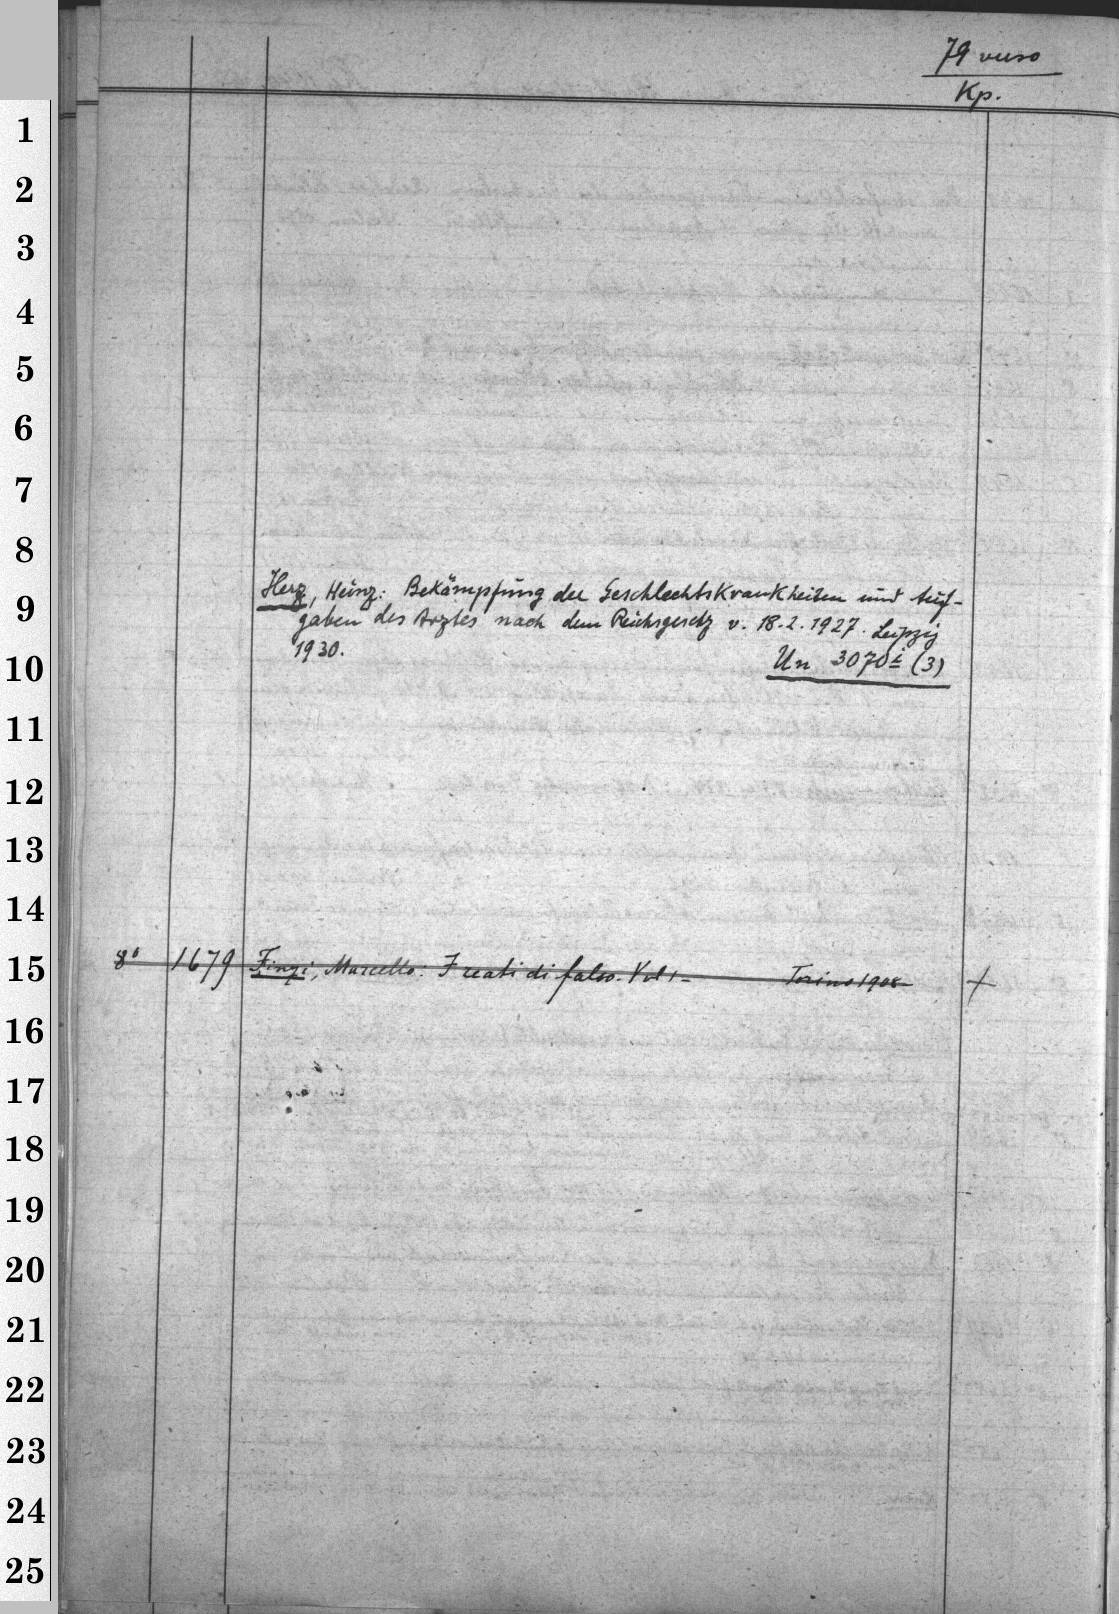 79 verso
Kp.
1
2
3
4
5
6
7
8
Herz, Heinz: Bekämpfung der Geschlechtskrankheiten und Auf-
9
gaben des Arztes nach dem Reichsgesetz v. 18.2.1927. Leipzig
1930.
Un 3070 i (3)
10
11
12
13
14
15 8° 1679 Finzi, Marcello: I reati di falso. Vol 1 - Torino 1908 +
16
17
18
19
20
21
22
23
24
25